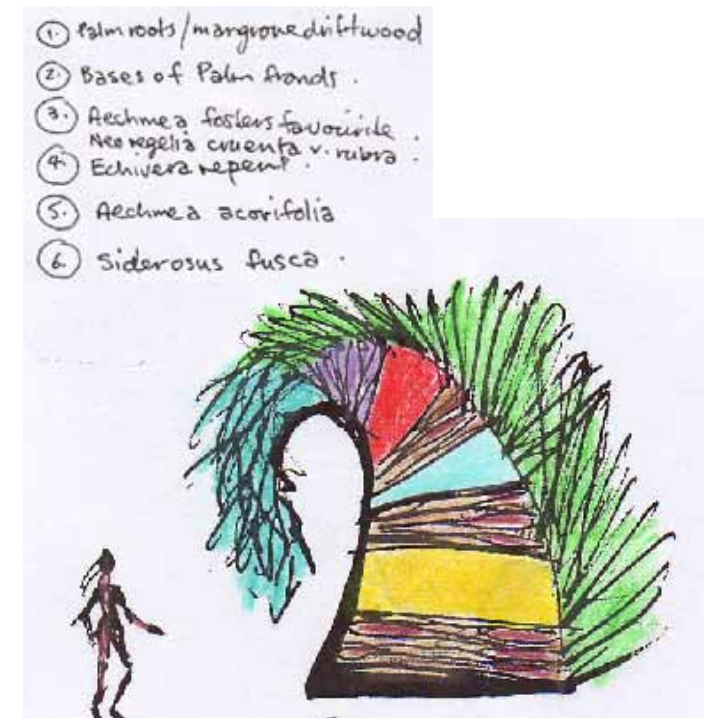 1. Palm roots/mangrove driftwood
2. Bases of Palm fronds.
3. Aechmea fosters favourite
Neoregelia cruenta v. rubra.
4. Echivera repent.
5. Aechmea acorifolia
6. Siderosus fusca.